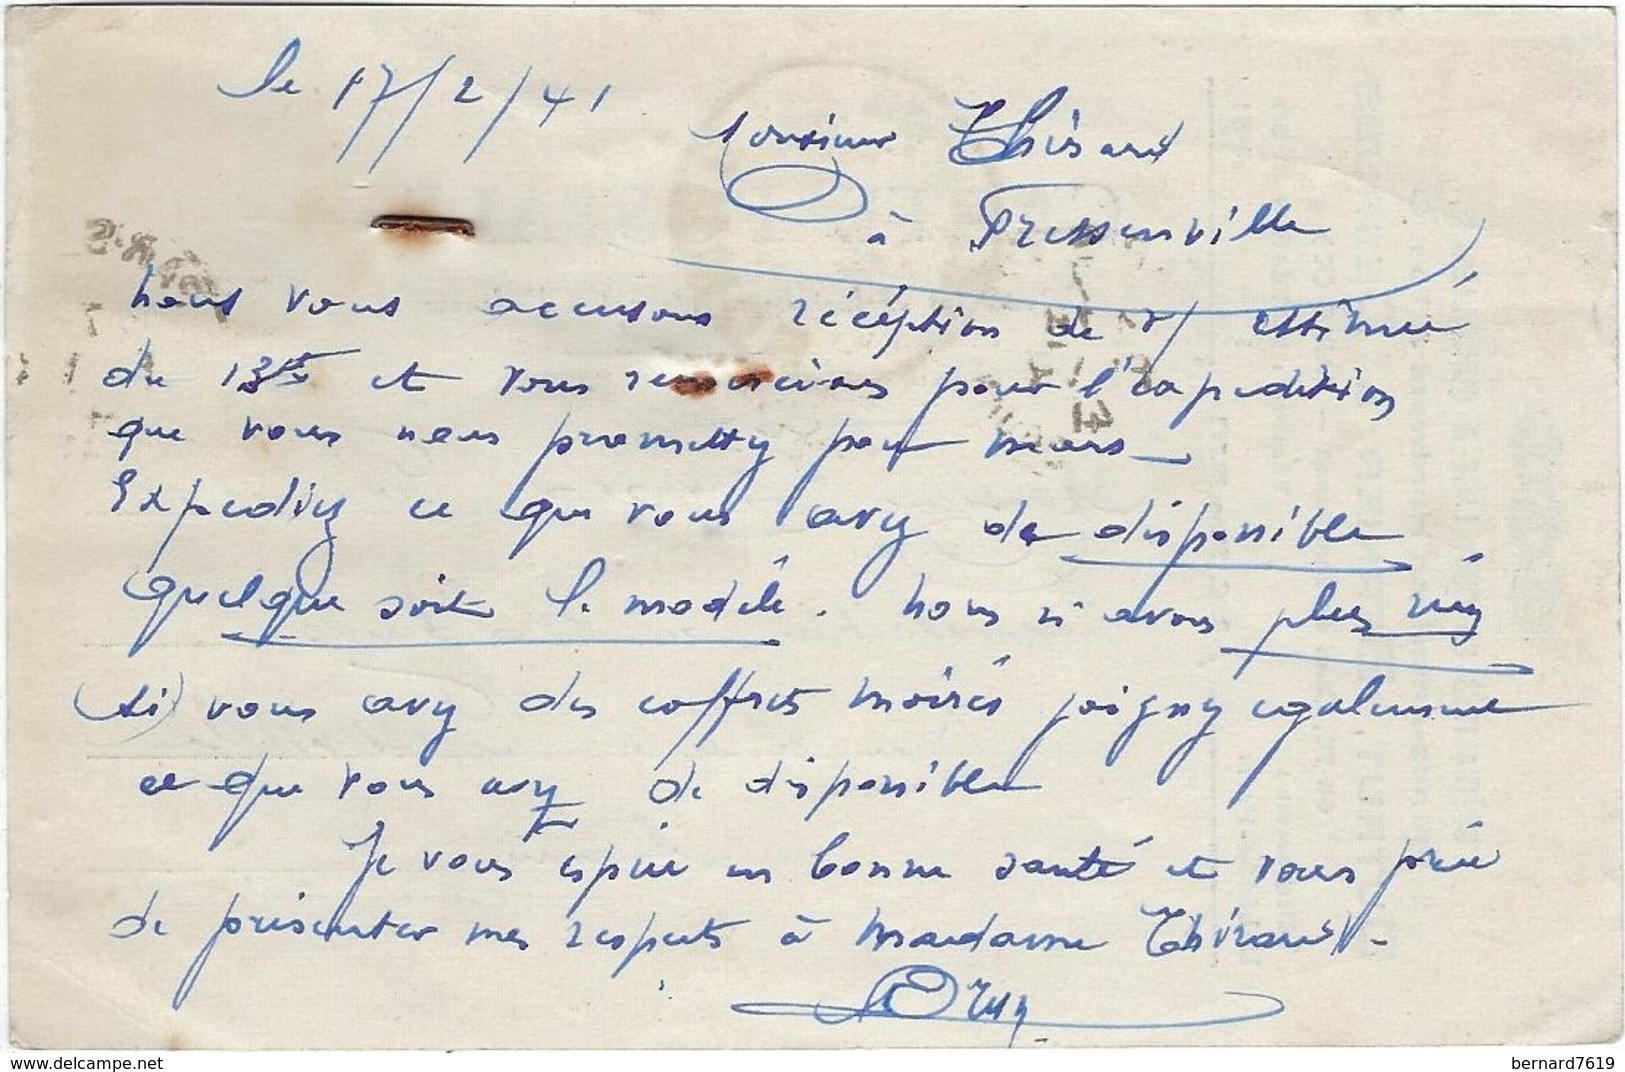 le 17/2/41
Monsieur Thirard
à Fressenville
Nous vous accusons réception de v/ estimée
du 13 ct et vous remercions pour l'expedition
que vous nous promettez pour mars_
Expediez ce que vous avez de disponible
quelque soit le modéle. Nous n'avons plus rien
(si) vous avez des coffrets moirés joignez egalement
ce que vous avez de disponible
Je vous espère en bonne santé et vous prie
de présenter mes respects à Madame Thirard.
www.delcampe.net
bernard7619